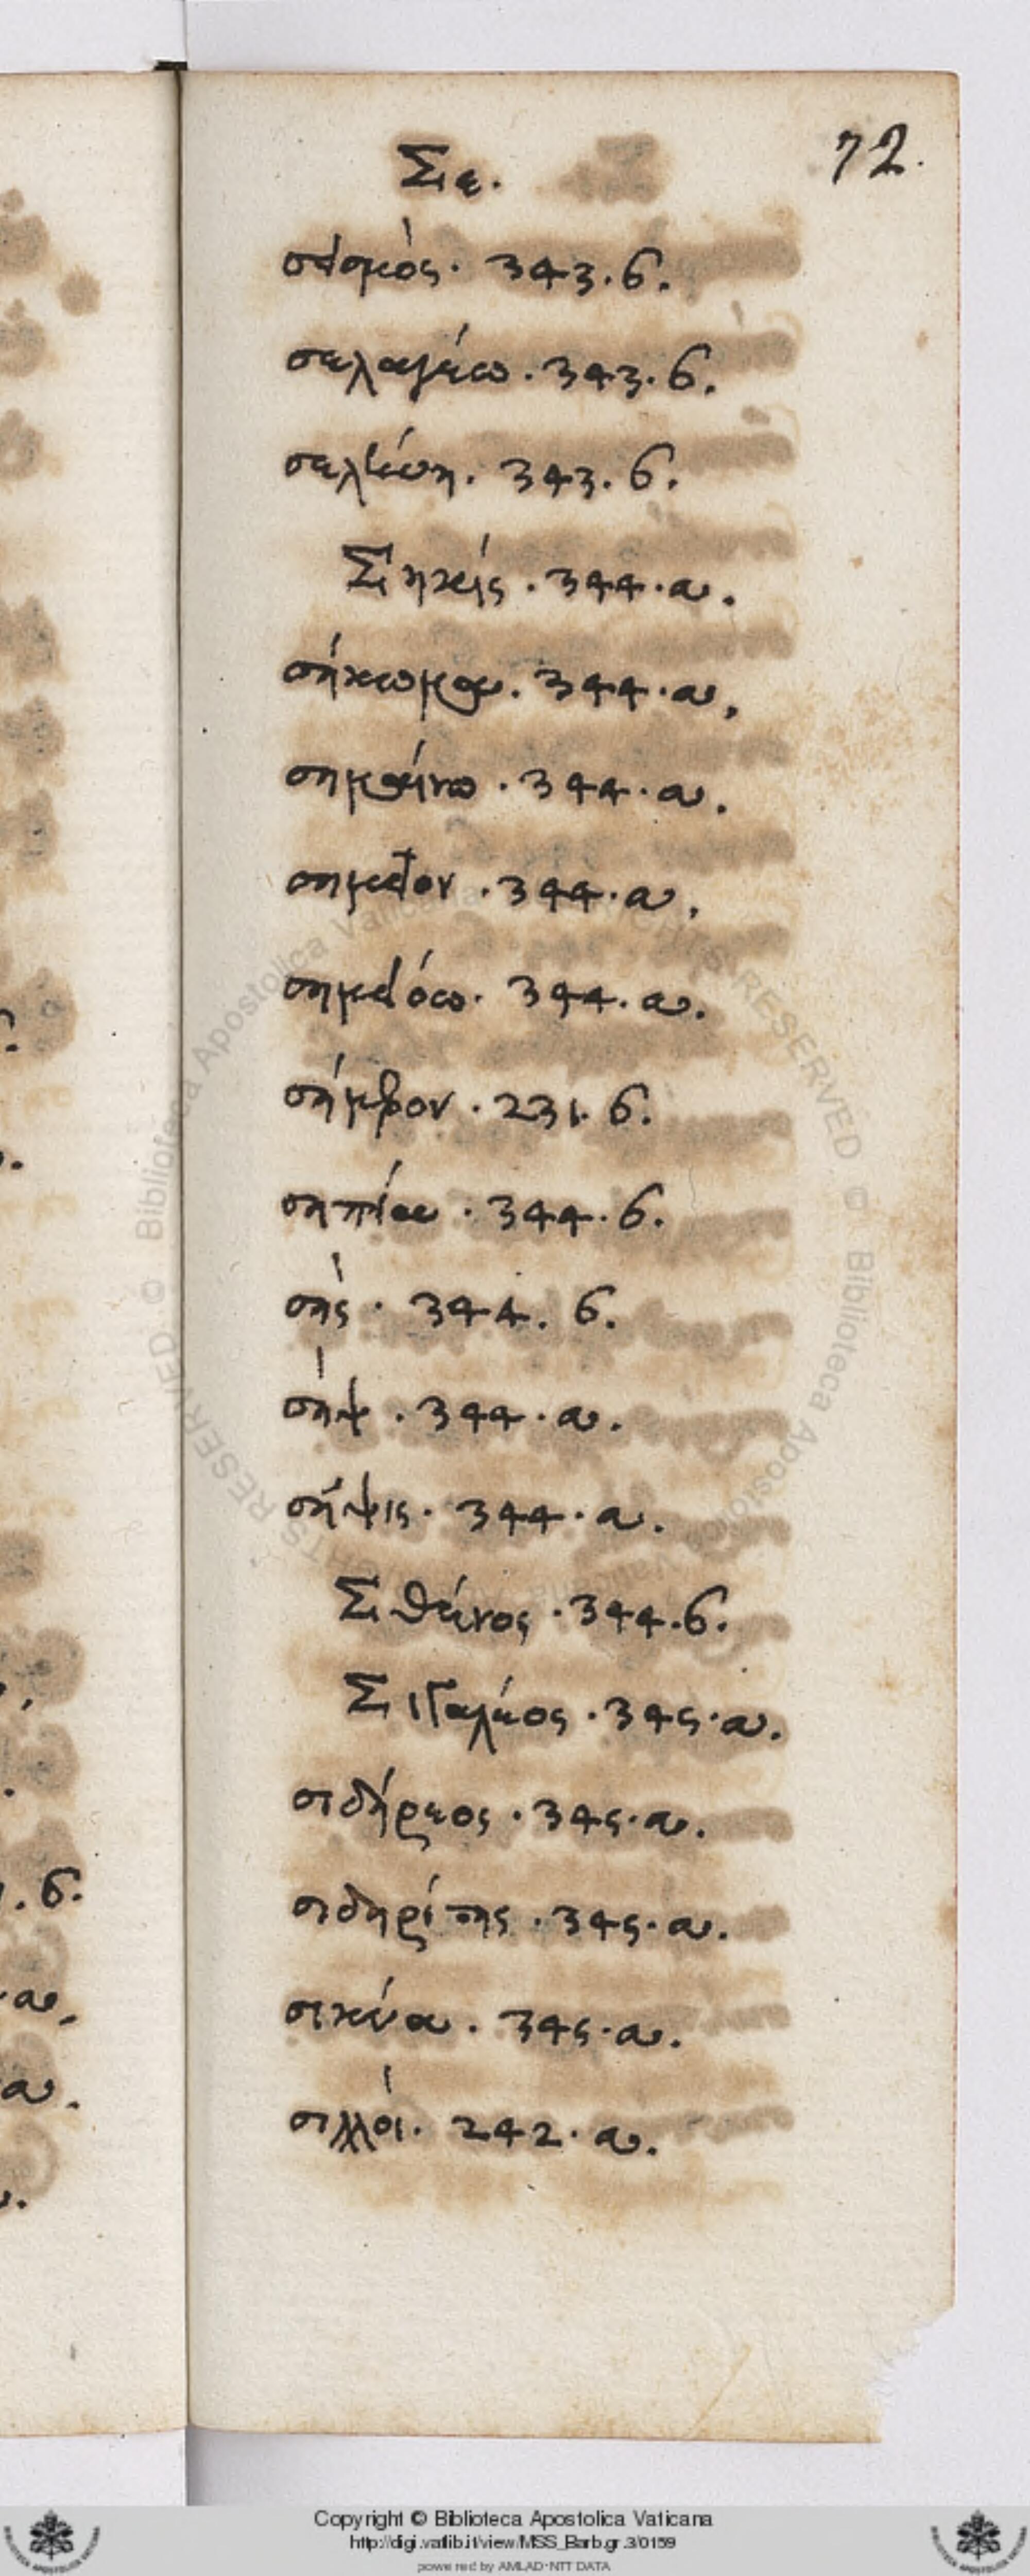 72.
Σε.
σεισμός. 343. β.
σελαγέω. 343. β.
σελήνη. 343. β.
Σηκίς. 344. α.
σήκωμα. 344. α.
σημαίνω. 344. α.
σημεῖον. 344. α.
σημειόω. 344. α.
σήμερον. 231. β.
σηπία. 344. β.
σής. 344. β.
σήψ. 344. α.
σήψις. 344. α.
Σθένος. 344. β.
Σιγαλέος. 345. α.
σιδήρεος. 345. α.
σιδηρίτης. 345. α.
σικύα. 345. α.
σιλλοί. 242. α.
Copyright © Biblioteca Apostolica Vaticana
http://digi.vatlib.it/view/MSS_Barb.gr.3/0159
powered by AMLAD-NTT DATA